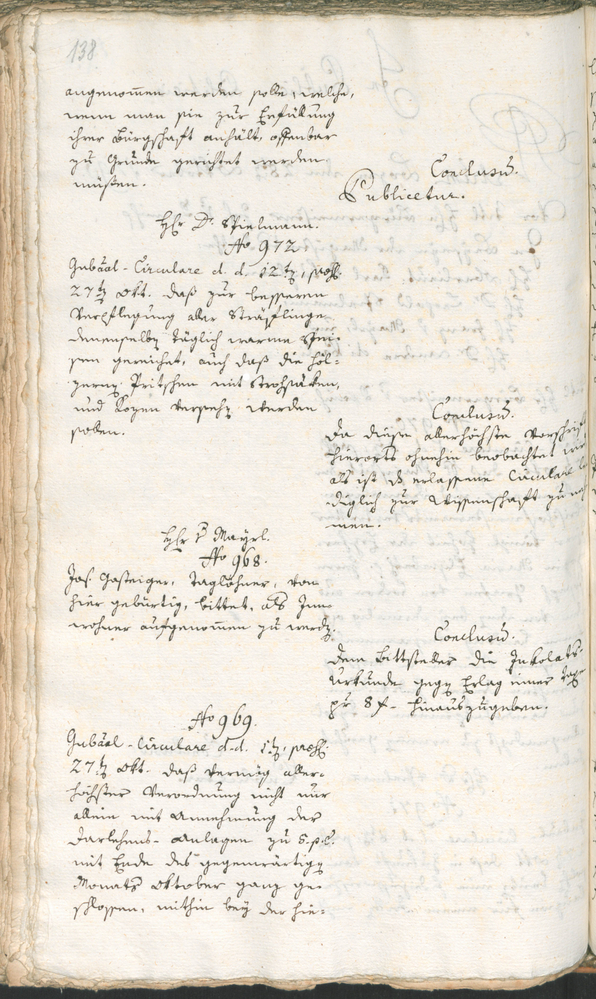 138
angenom̅en werden solle, welche,
wenn man sie zur Erfüllung
ihrer Bürgschaft anhält, offenbar
zu Grunde gerichtet werden
müßten.
Conclusū.
Publicetur.
Hr Dr Spielmann.
No 972
Gubäal-Circulare d. d. 12t, präs.
27t Okt. daß zur besseren
Verpflegung aller Sträflinge
denenselben täglich warme Spei-
sen gereichet, auch daß die höl-
zernen Pritschen mit Strohsäcken,
und Kozen versehen werden
sollen.
Conclusū.
Da diese allerhöchste Vorschrift
hierorts ohnehin beobachtet wird
als ist das erlassene Circulare le-
diglich zur Wissenschaft zu neh-
men.
Hr v Mayrl.
No 968.
Jos. Gasteiger, Taglöhner, von
hier gebürtig, bittet, als Inn-
wohner aufgenom̅en zu werden.
Conclusū.
Dem Bittsteller die Inkolats-
Urkunde gegen Erlag einer Taxe
pr 8 f hinauszugeben.
No 969.
Gubäal-Circulare d. d. 1t, präs.
27t Okt. daß vermög aller-
höchster Verordnung nicht nur
allein mit Annehmung der
Darlehens-Anlagen zu 5 pC.
mit Ende des gegenwärtigen
Monats Oktober ganz ge-
schlossen, mithin bey der hie-